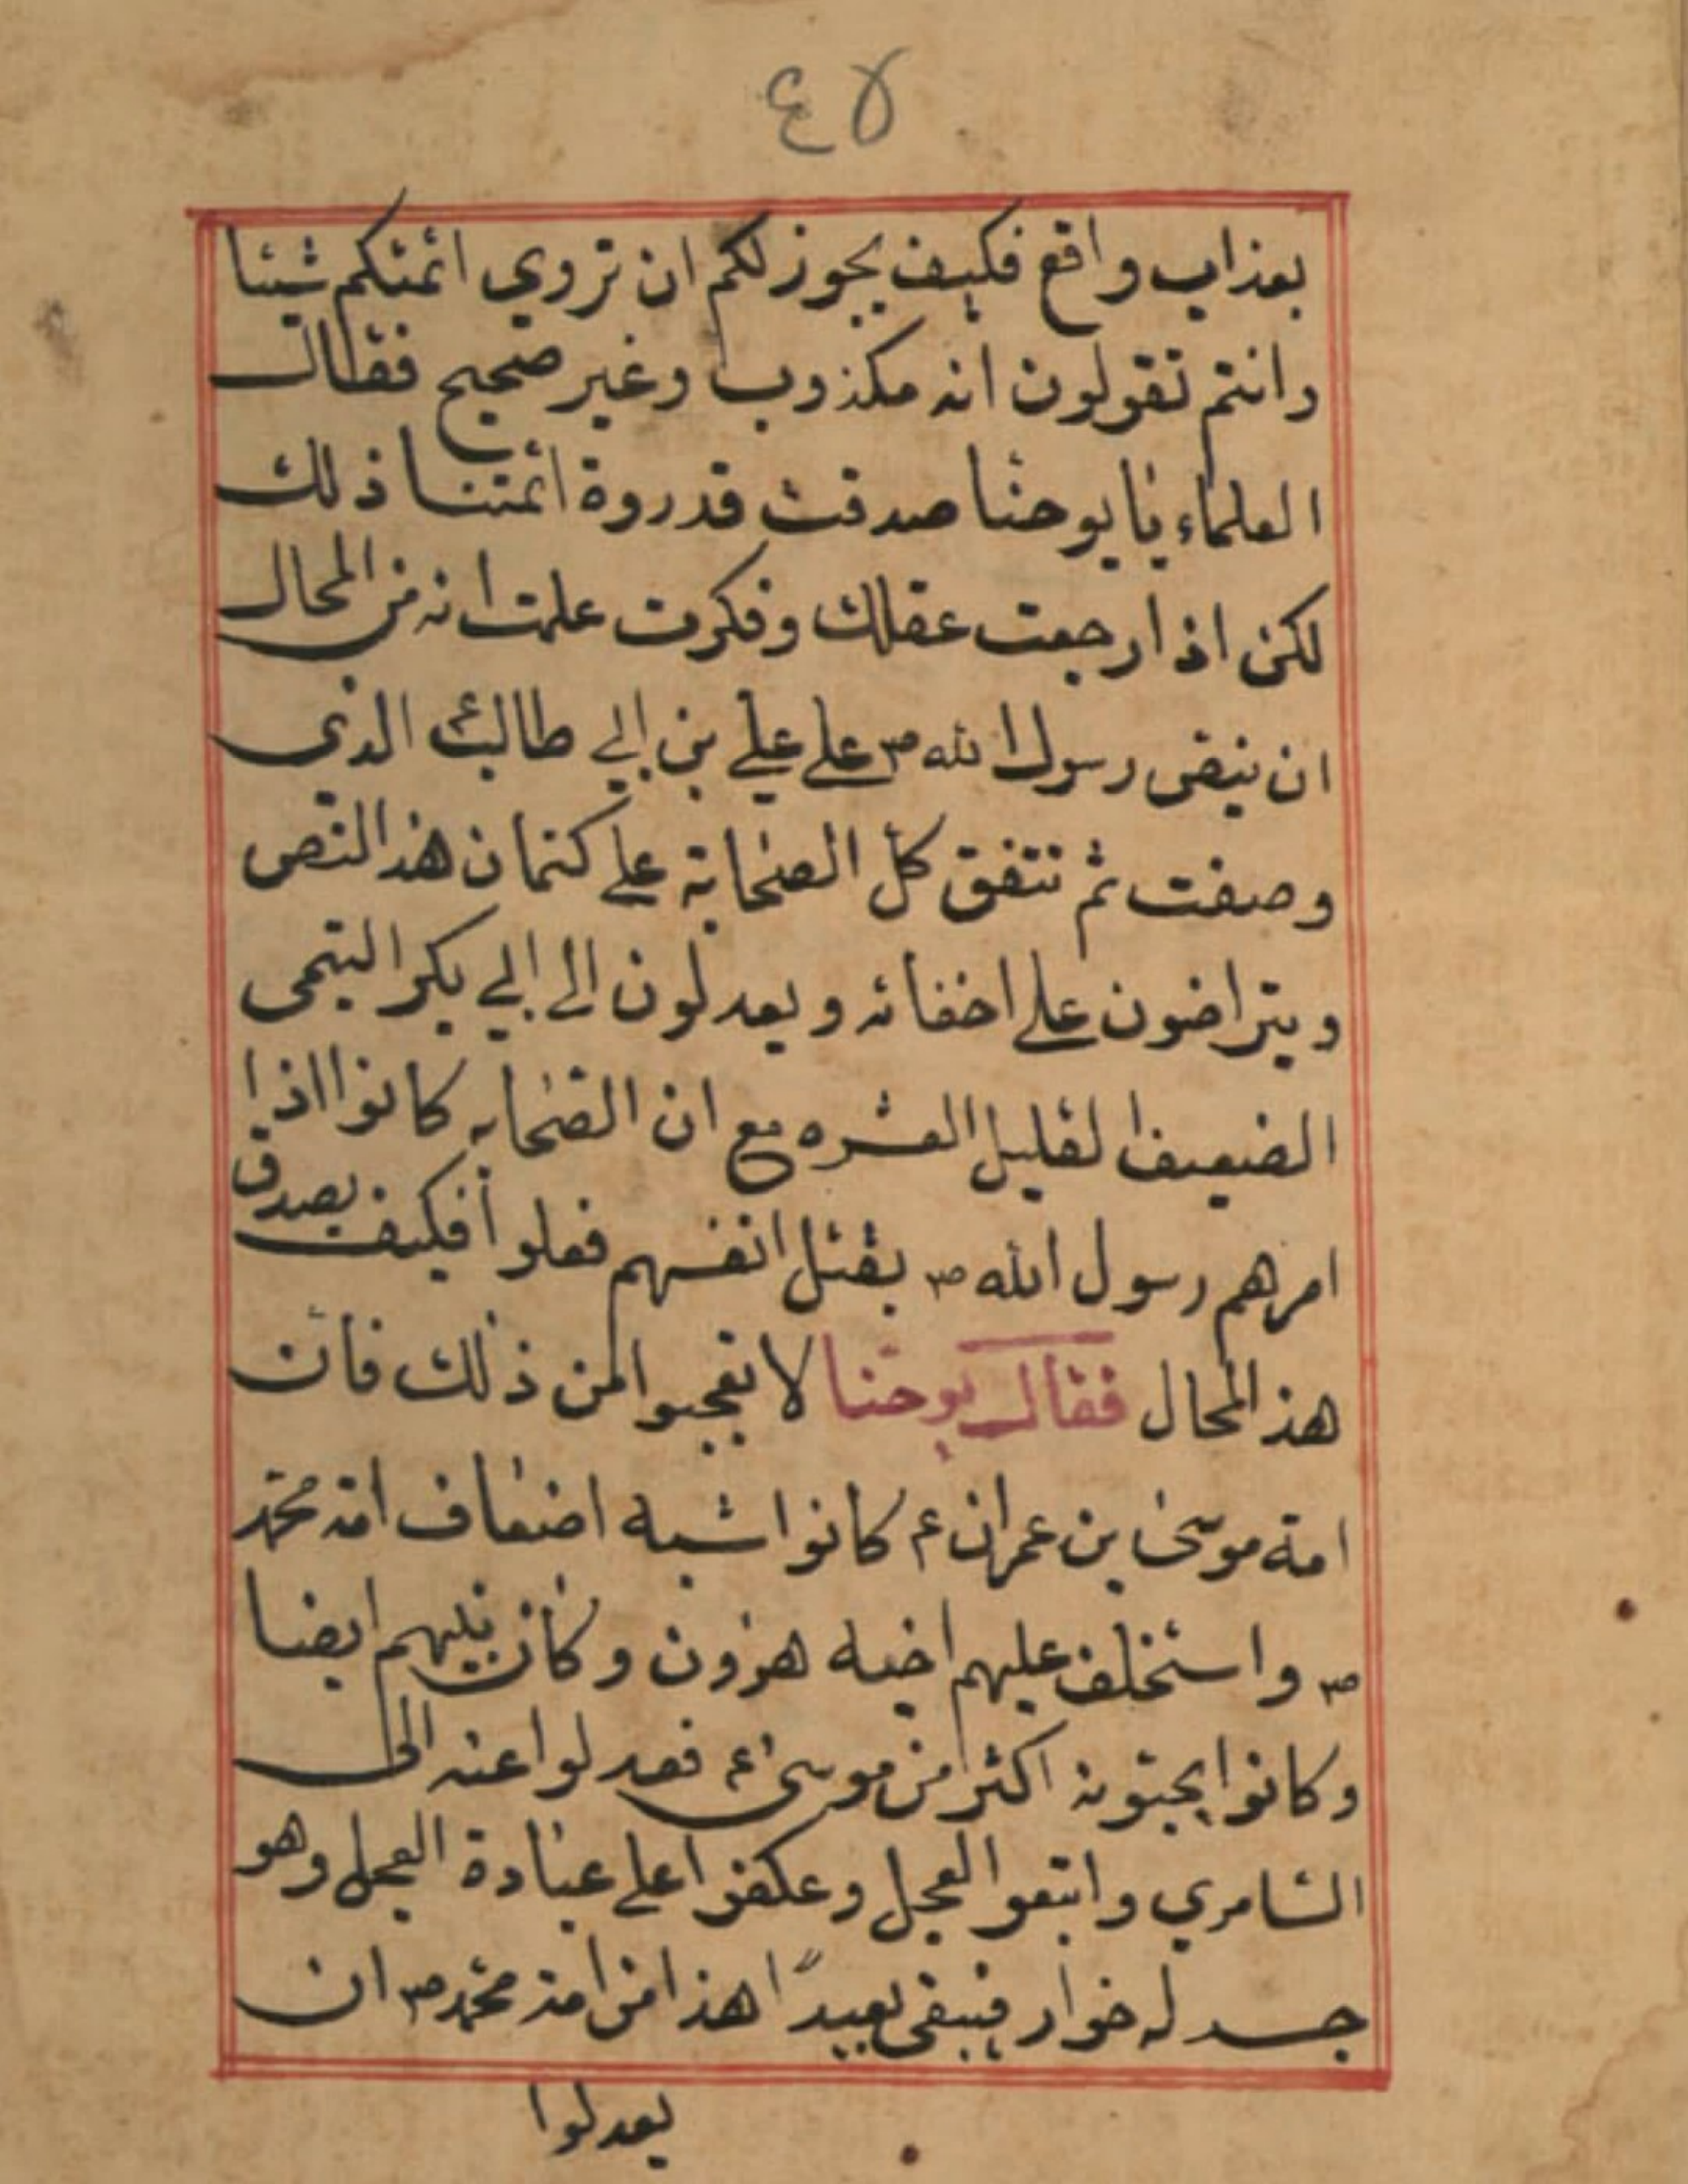 ٤٧
بعذاب واقع فكيف يجوز لكم ان تروي ائمتكم شيئا
وانتم تقولون انه مكذوب وغير صحيح فقال
العلماء يا يوحنا صدقت قد روة ائمتنا ذلك
لكن اذا رجعت عقلك وفكرت علمت انه من المحال
ان ينص رسول الله ص على علي بن ابي طالب الذي
وصفت ثم تتفق كل الصحابة على كتمان هذ النص
ويتراضون على اخفائه ويعدلون الى ابي بكر التيمى
الضعيف القليل العشره مع ان الصحابه كانوا اذا
امرهم رسول الله ص بقتل انفسهم فعلوا فكيف يصدق
هذ المحال فقال يوحنا لا تعجبوا من ذلك فان
امة موسى بن عمران ع كانوا اشبه اضعاف امة محمد
ص واستخلف عليهم اخيه هرون وكان نبيهم ايضا
وكانوا يحبونه اكثر من موسى ع فعدلوا عنه الى
السامري واتبعوا العجل وعكفوا على عبادة العجل وهو
جسد له خوار فيبقى بعيدًا هذا من امة محمد ص ان
يعدلوا